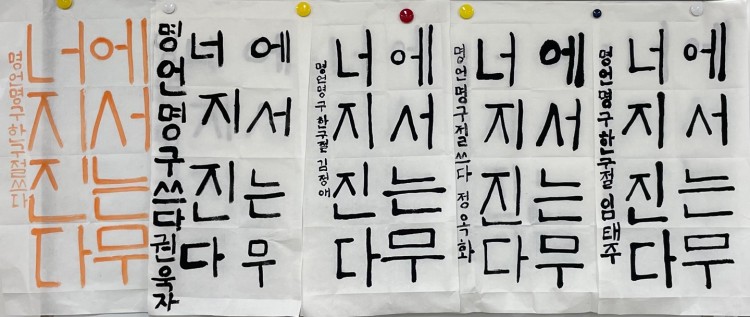 에서는무
너지진다
명언명구한구절쓰다
에서는무
너지진다
명언명구쓰다 권욱자
에서는무
너지진다
명언명구한구절 김정애
에서는무
너지진다
명언명구절쓰다 정옥화
에서는무
너지진다
명언명구한구절 임태주